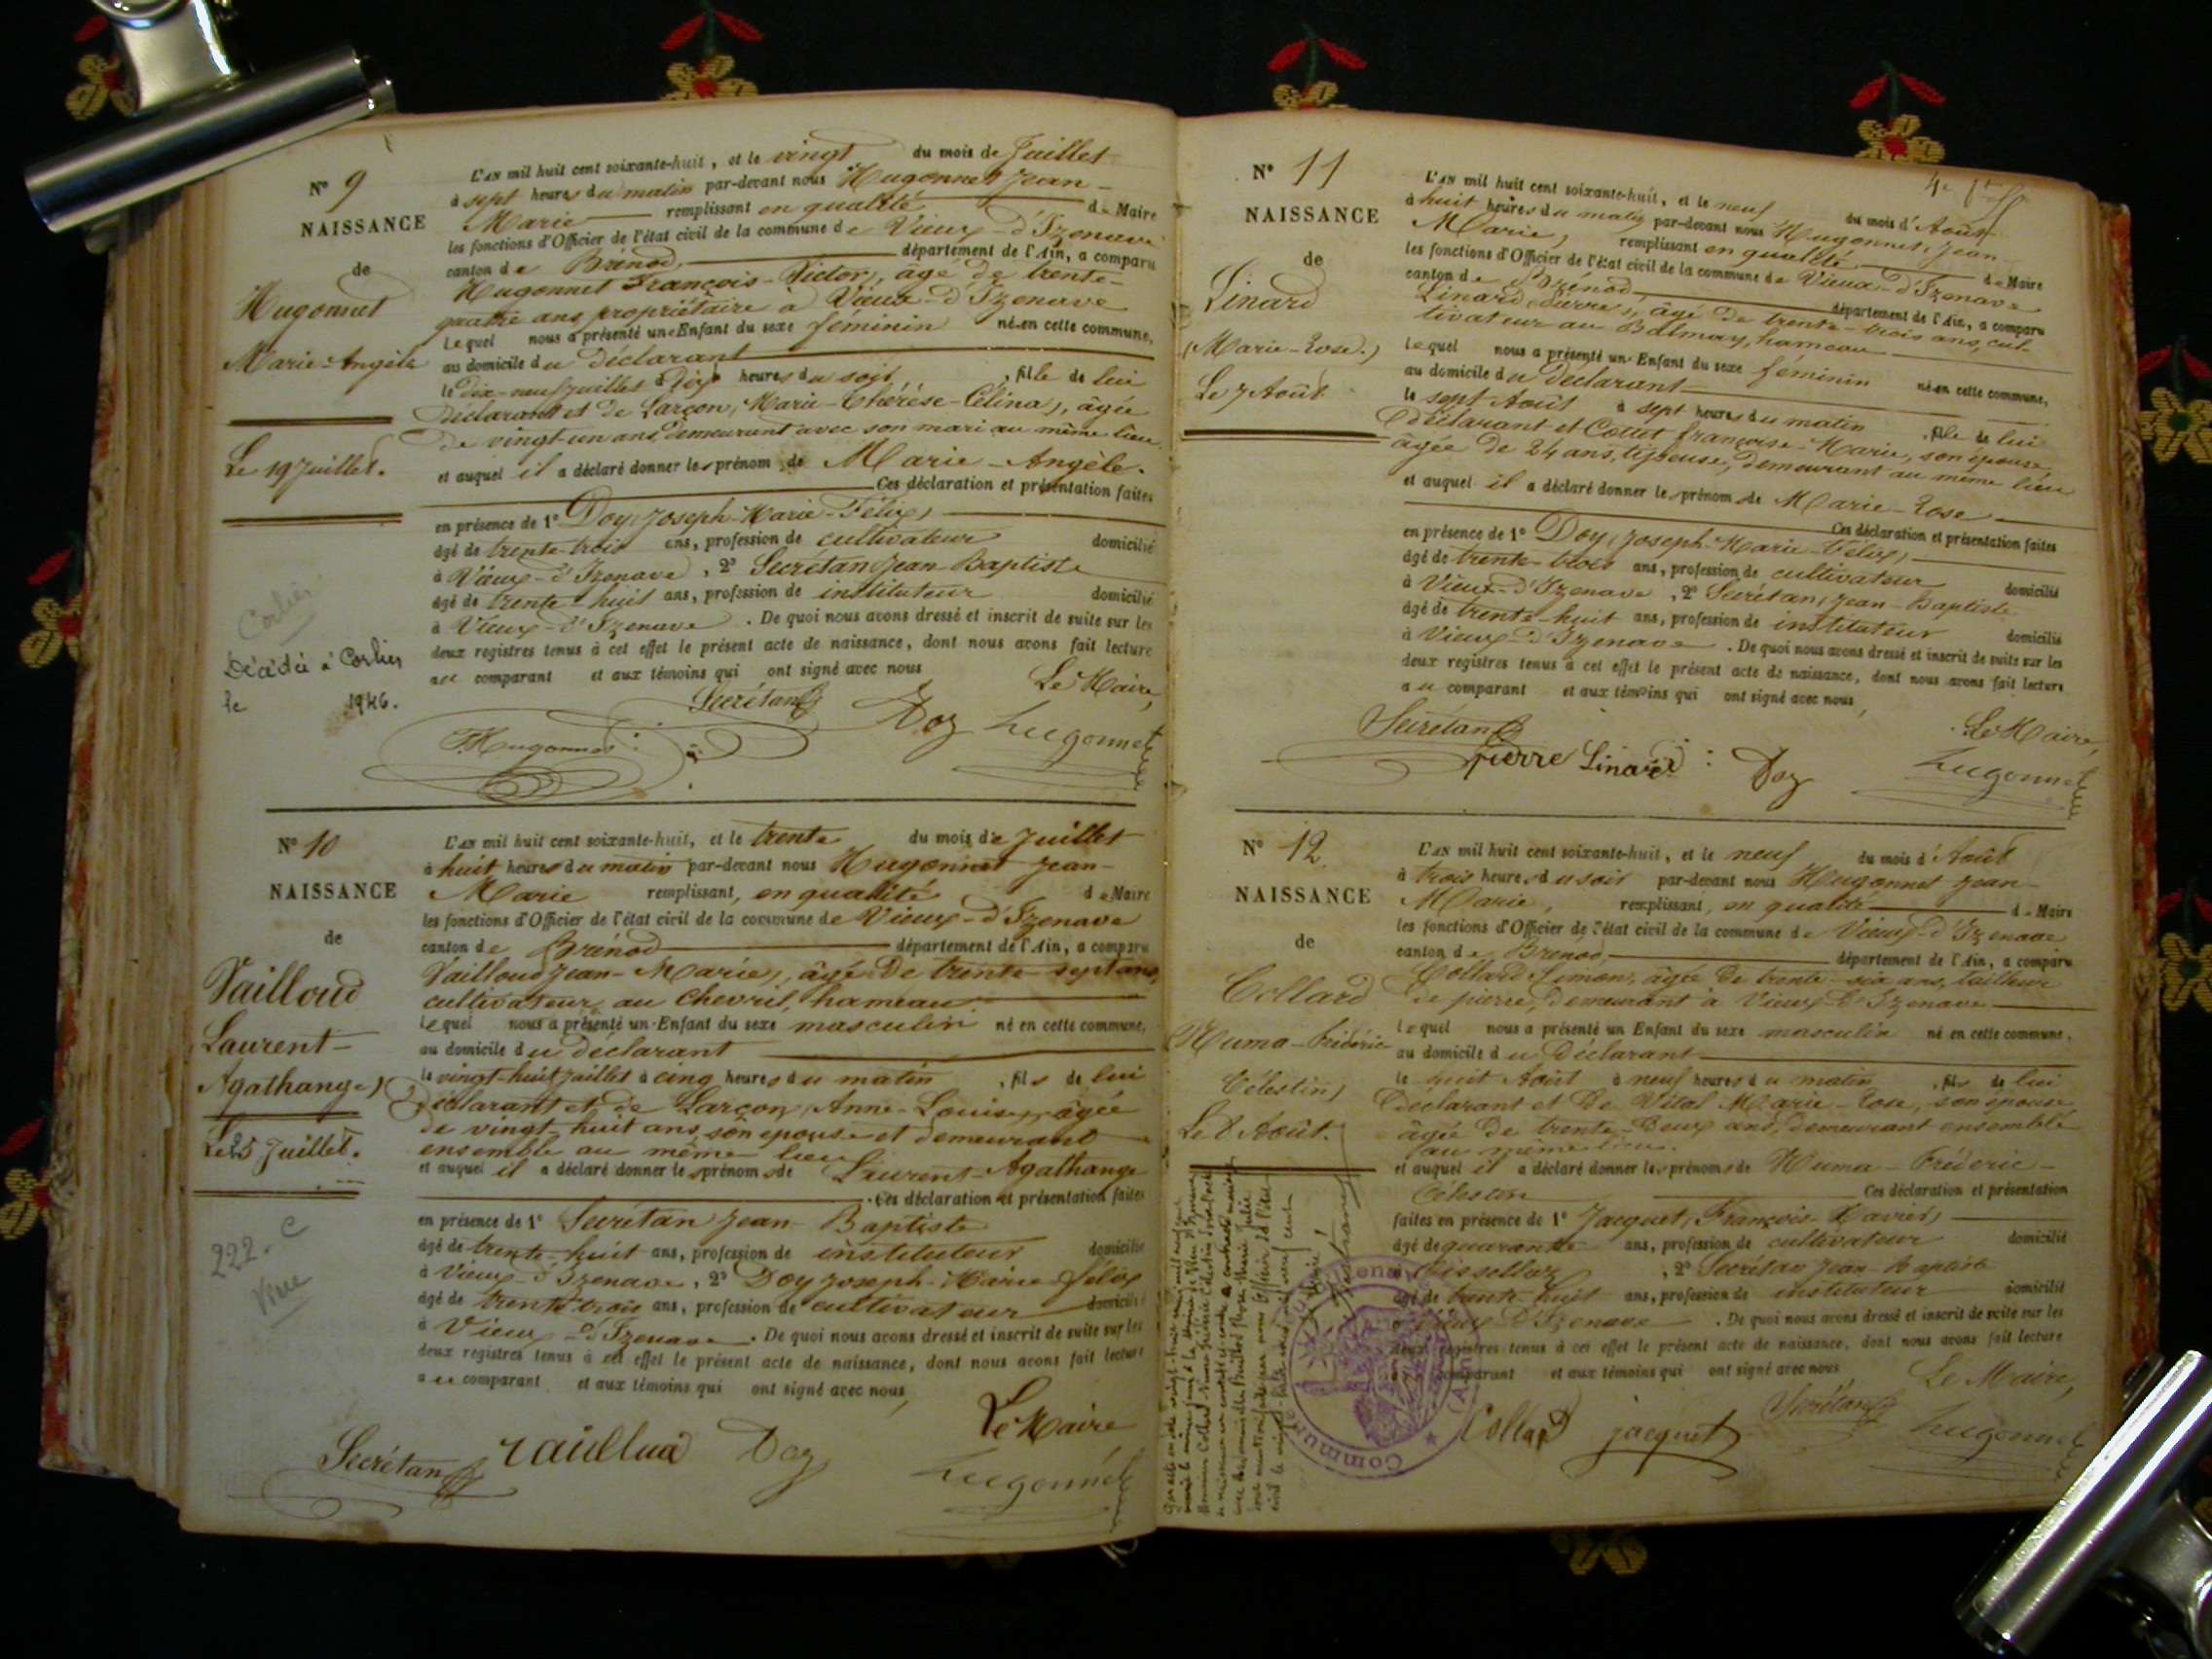 N° 9
NAISSANCE
de
Hugonnet
Marie-Angèle
Le 19 Juillet.
Corlier
Décédée à Corlier
le 1946.
L'AN mil huit cent soixante-huit, et le vingt du mois de Juillet
à sept heures du matin par-devant nous Hugonnet Jean-
Marie remplissant en qualité de Maire
les fonctions d'Officier de l'état civil de la commune de Vieux-d'Izenave
canton de Brénod département de l'Ain, a comparu
Hugonnet François-Victor, âgé de trente-
quatre ans propriétaire à Vieux-d'Izenave
lequel nous a présenté une Enfant du sexe féminin née en cette commune,
au domicile du déclarant
le dix-neuf juillet à dix heures du soir, fille de lui
déclarant et de Larçon, Marie-Thérèse-Célina, âgée
de vingt-un ans, demeurant avec son mari au même lieu
et auquel il a déclaré donner les prénoms de Marie-Angèle.
Ces déclaration et présentation faites
en présence de 1° Doy, Joseph-Marie-Félix,
âgé de trente-trois ans, profession de cultivateur domicilié
à Vieux-d'Izenave, 2° Secrétan Jean-Baptiste
âgé de trente-huit ans, profession de instituteur domicilié
à Vieux-d'Izenave. De quoi nous avons dressé et inscrit de suite sur les
deux registres tenus à cet effet le présent acte de naissance, dont nous avons fait lecture
au comparant et aux témoins qui ont signé avec nous
Le Maire,
Secrétan Doy Hugonnet
Hugonnet
N° 10
NAISSANCE
de
Vailloud
Laurent-
Agathange,
Le 25 Juillet.
222. C
L'AN mil huit cent soixante-huit, et le trente du mois de Juillet
à huit heures du matin par-devant nous Hugonnet Jean-
Marie remplissant, en qualité de Maire
les fonctions d'Officier de l'état civil de la commune de Vieux-d'Izenave
canton de Brénod département de l'Ain, a comparu
Vailloud Jean-Marie, âgé de trente-sept ans,
cultivateur au Chevril, hameau
lequel nous a présenté un Enfant du sexe masculin né en cette commune,
au domicile du déclarant
le vingt-huit juillet à cinq heures du matin, fils de lui
déclarant et de Larçon, Anne-Louise, âgée
de vingt-huit ans, son épouse et demeurant
ensemble au même lieu
et auquel il a déclaré donner les prénoms de Laurent-Agathange
Ces déclaration et présentation faites
en présence de 1° Secrétan Jean-Baptiste
âgé de trente-huit ans, profession de instituteur domicilié
à Vieux-d'Izenave, 2° Doy Joseph-Marie-Félix
âgé de trente-trois ans, profession de cultivateur domicilié
à Vieux-d'Izenave. De quoi nous avons dressé et inscrit de suite sur les
deux registres tenus à cet effet le présent acte de naissance, dont nous avons fait lecture
au comparant et aux témoins qui ont signé avec nous,
Le Maire
Secrétan Doy Hugonnet
N° 11
NAISSANCE
de
Linard
(Marie-Rose.)
Le 7 Août
L'AN mil huit cent soixante-huit, et le neuf du mois d'Août
à huit heures du matin par-devant nous Hugonnet, Jean-
Marie, remplissant en qualité de Maire
les fonctions d'Officier de l'état civil de la commune de Vieux-d'Izenave
canton de Brénod département de l'Ain, a comparu
Linard Pierre, âgé de trente-trois ans, cul-
tivateur au Balmay, hameau
lequel nous a présenté un Enfant du sexe féminin née en cette commune,
au domicile du déclarant
le sept Août à sept heures du matin, fille de lui
déclarant et Cottet Françoise-Marie, son épouse,
âgée de 24 ans, tisseuse, demeurant au même lieu
et auquel il a déclaré donner les prénoms de Marie-Rose
Ces déclaration et présentation faites
en présence de 1° Doy, Joseph-Marie-Félix,
âgé de trente-trois ans, profession de cultivateur domicilié
à Vieux-d'Izenave, 2° Secrétan, Jean-Baptiste
âgé de trente-huit ans, profession de instituteur domicilié
à Vieux-d'Izenave. De quoi nous avons dressé et inscrit de suite sur les
deux registres tenus à cet effet le présent acte de naissance, dont nous avons fait lecture
au comparant et aux témoins qui ont signé avec nous,
Le Maire,
Secrétan Pierre Linard Doy Hugonnet
N° 12
NAISSANCE
de
Collard
Numa-Frédéric
Célestin,
Le 8 Août.
L'AN mil huit cent soixante-huit, et le neuf du mois d'Août
à trois heures du soir par-devant nous Hugonnet Jean-
Marie, remplissant, en qualité de Maire
les fonctions d'Officier de l'état civil de la commune de Vieux-d'Izenave
canton de Brénod, département de l'Ain, a comparu
Collard Simon, âgé de trente-six ans, tailleur
de pierre, demeurant à Vieux-d'Izenave
lequel nous a présenté un Enfant du sexe masculin né en cette commune,
au domicile du Déclarant
le huit Août à neuf heures du matin, fils de lui
Déclarant et de Vital Marie-Rose, son épouse
âgée de trente-deux ans, demeurant ensemble
au même lieu.
et auquel il a déclaré donner les prénoms de Numa-Fréderic-
Célestin Ces déclaration et présentation
faites en présence de 1° Jacquet, François-Xavier,
âgé de quarante ans, profession de cultivateur domicilié
2° Secrétan Jean-Baptiste
âgé de trente-huit ans, profession de instituteur domicilié
à Vieux-d'Izenave. De quoi nous avons dressé et inscrit de suite sur les
deux registres tenus à cet effet le présent acte de naissance, dont nous avons fait lecture
au comparant et aux témoins qui ont signé avec nous
Le Maire,
Collard jacquet Secrétan Hugonnet
Commune
(Ain)